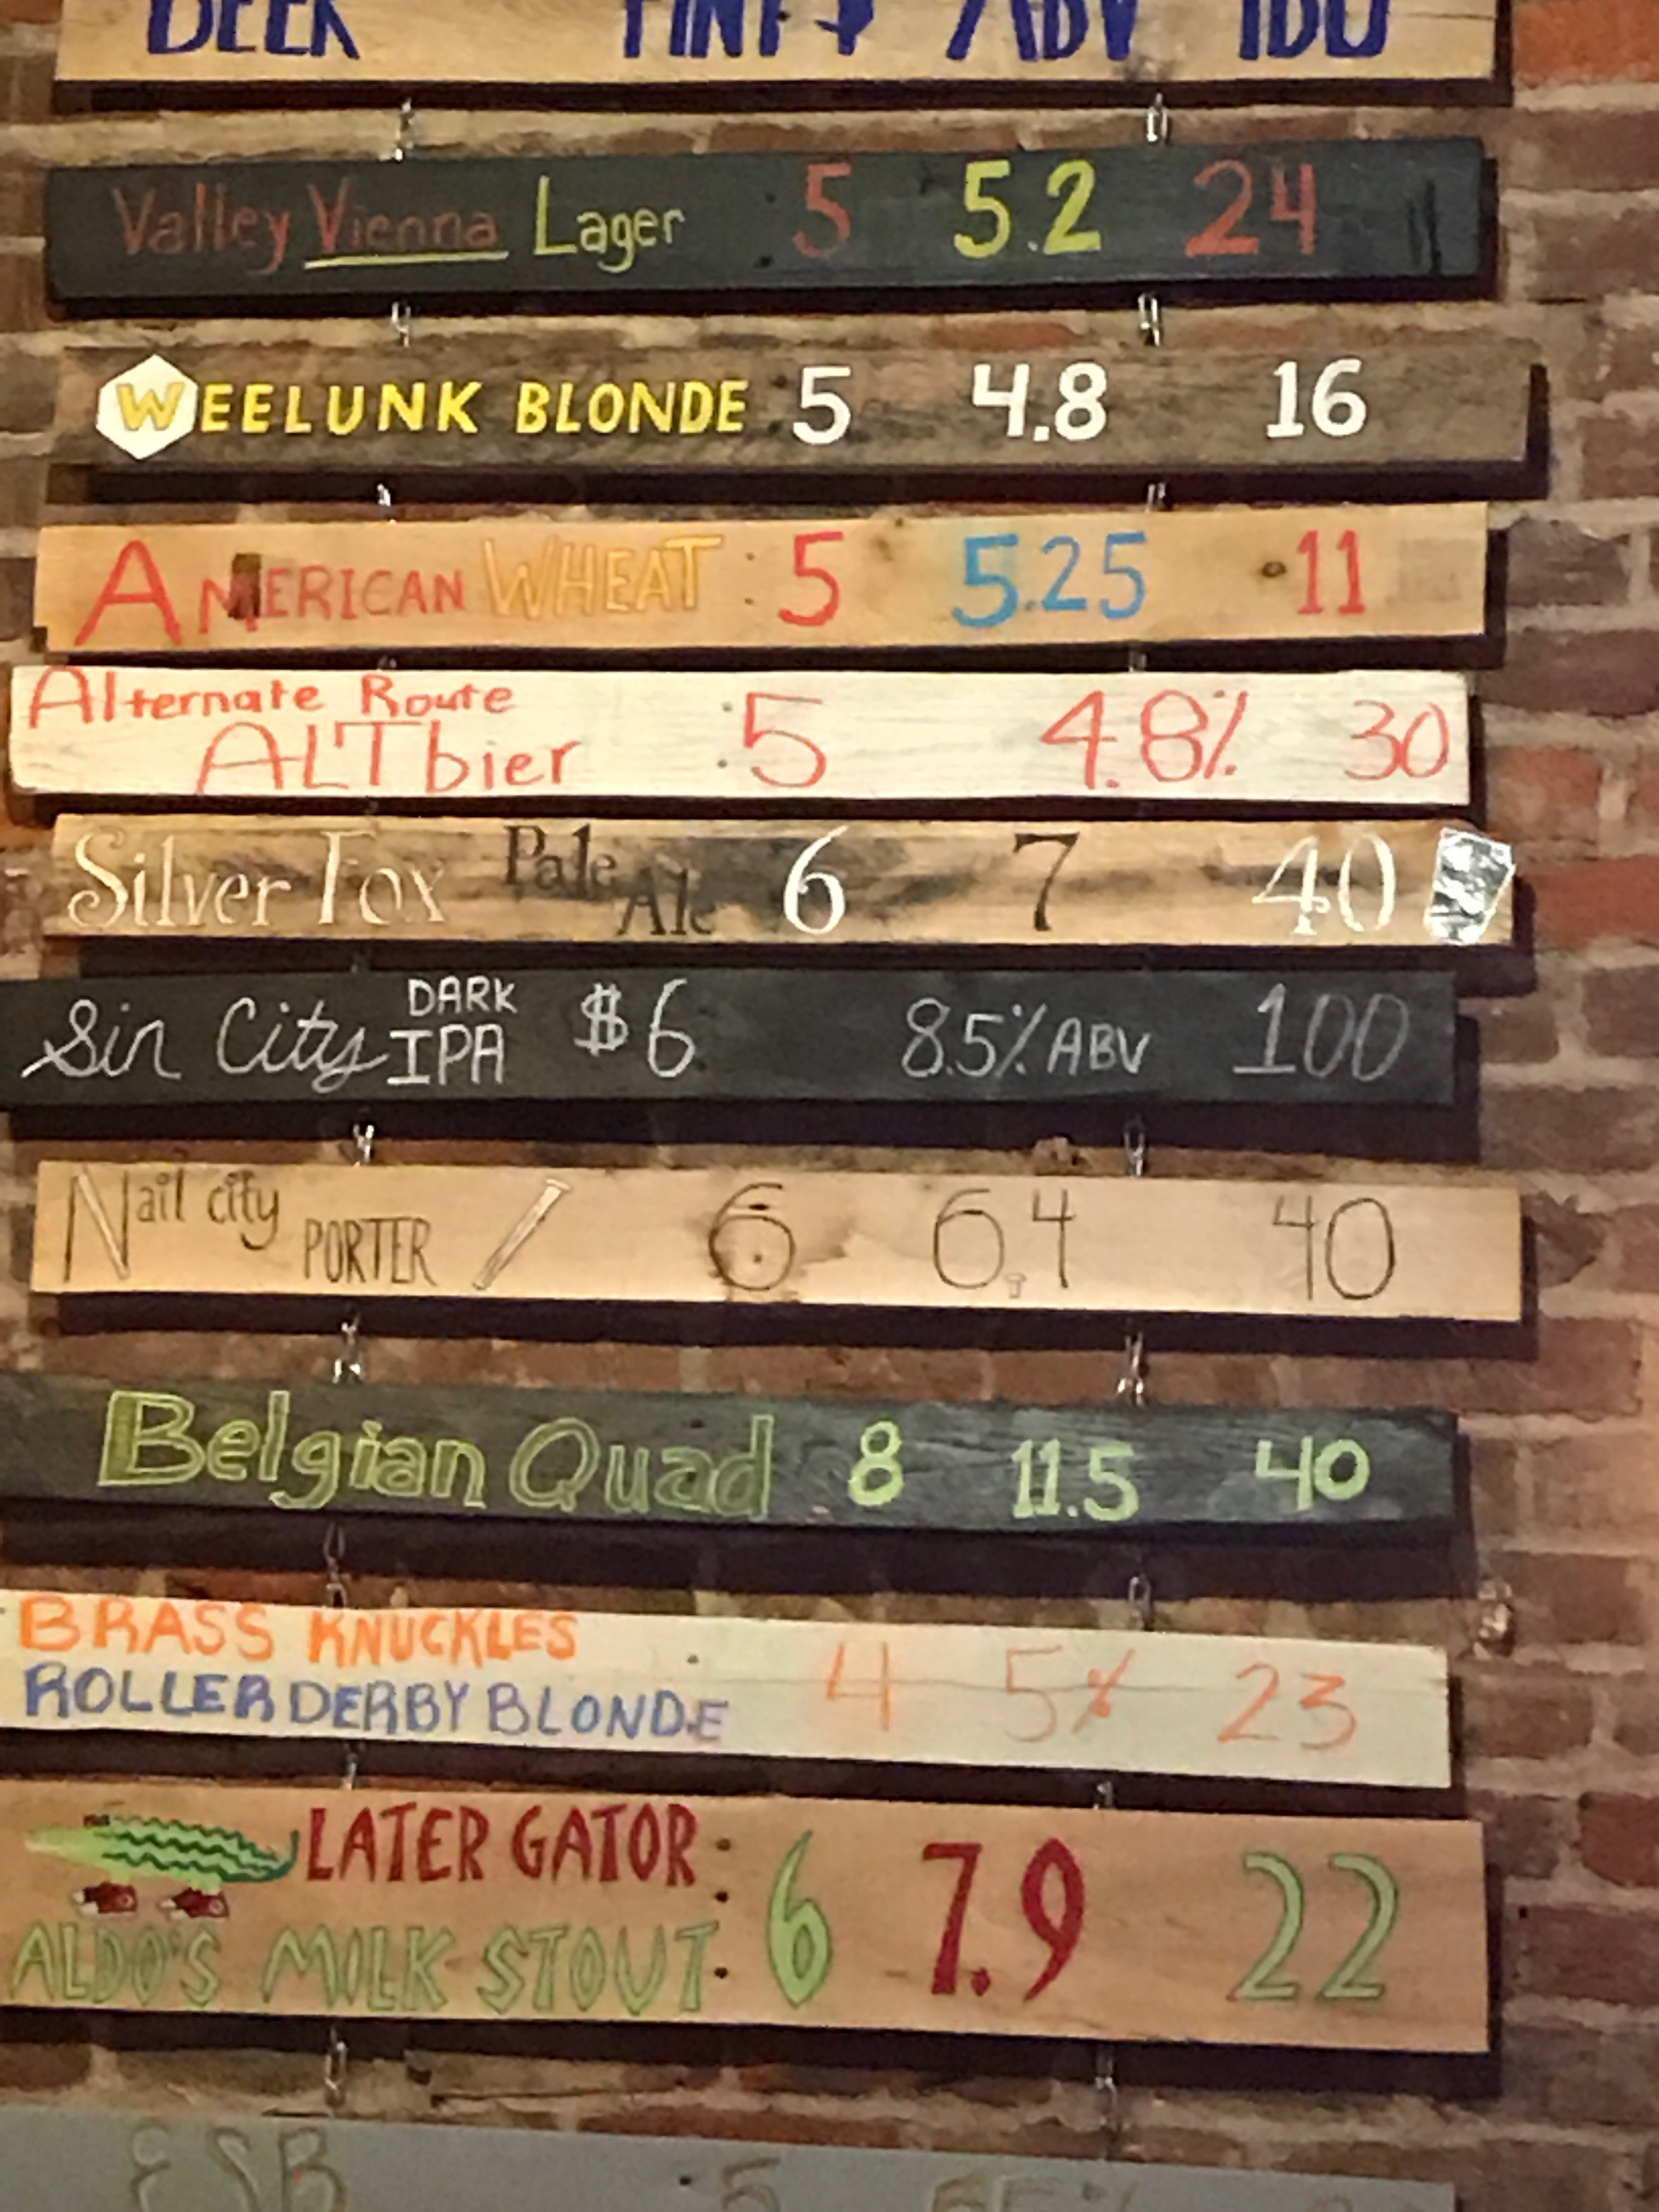 BEER PINT $ ABV IBU
Valley Vienna Lager 5 5.2 24
WEELUNK BLONDE 5 4.8 16
AMERICAN WHEAT : 5 5.25 11
Alternate Route
ALTbier : 5 4.8% 30
Silver Fox Pale Ale 6 7 40
Sin City DARK IPA $6 8.5% ABV 100
Nail city PORTER 6 6.4 40
Belgian Quad 8 11.5 40
BRASS KNUCKLES
ROLLER DERBY BLONDE 4 5% 23
LATER GATOR :
ALDO'S MILK STOUT : 6 7.9 22
ESB 5